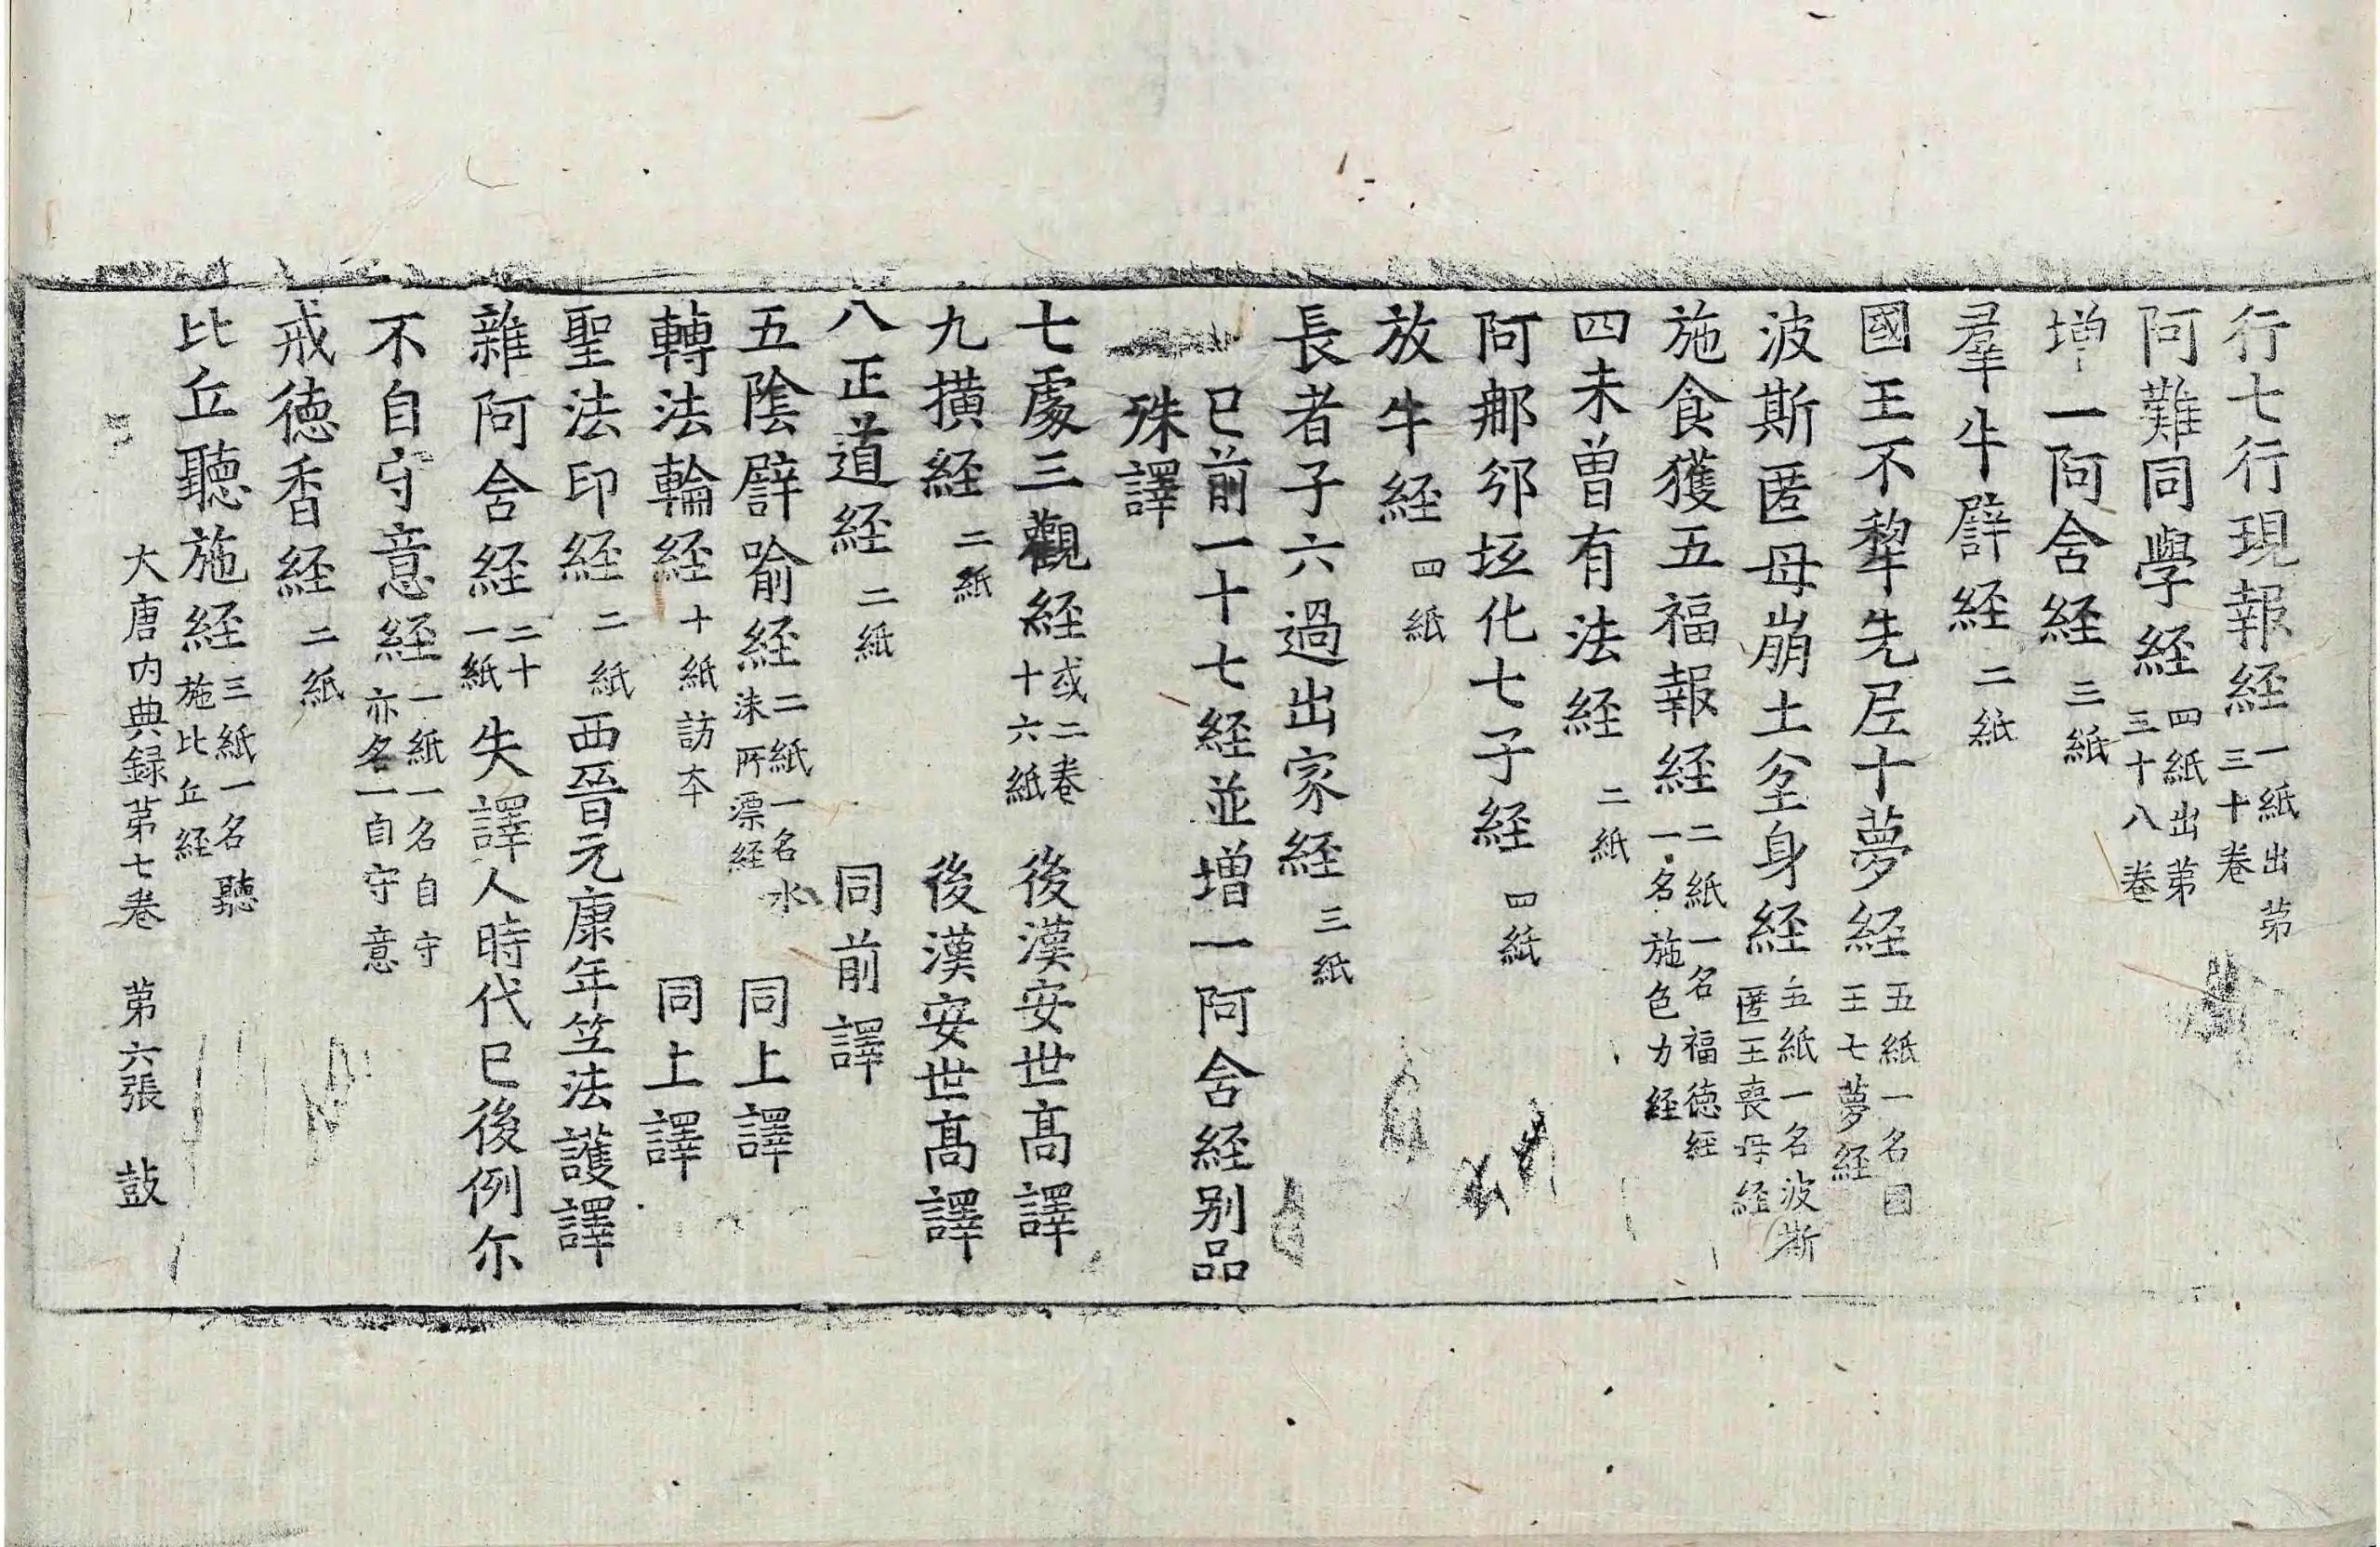 行七行現報経一紙出苐三十卷
阿難同學経四紙出苐三十八卷
增一阿含経三紙
羣牛譬経二紙
國王不犂先尼十夢経五紙一名國王七夢経
波斯匿母崩土坌身経五紙一名波斯匿王喪母経
施食獲五福報経二紙一名福德経一名施色力経
四未曾有法経二紙
阿那邠坻化七子経四紙
放牛経四紙
長者子六過出家経三紙
已前一十七経並增一阿含経别品
殊譯
七處三觀経或二卷十六紙後漢安世髙譯
九横経二紙後漢安世髙譯
八正道経二紙同前譯
五陰譬喻経二紙一名水沫所漂経同上譯
轉法輪経十紙訪本同上譯
聖法印経二紙西晉元康年竺法護譯
雜阿含経二十一紙失譯人時代已後例尔
不自守意経一紙一名自守亦名一自守意
戒德香経二紙
比丘聽施経三紙一名聽施比丘経
大唐内典録苐七卷 苐六張 鼓